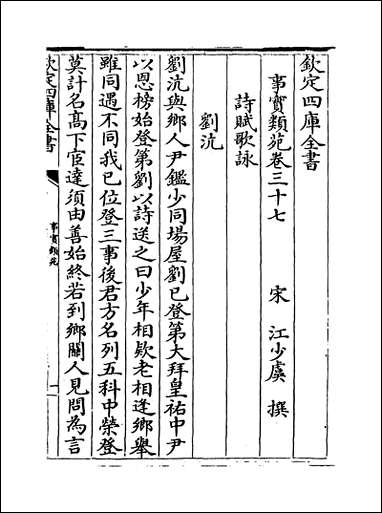 欽定四庫全書
事實類苑卷三十七 宋 江少虞 撰
詩賦歌詠
劉沆
劉沆與鄉人尹鑑少同場屋劉已登第大拜皇祐中尹
以恩榜始登第劉以詩送之曰少年相欵老相逢鄉舉
雖同遇不同我已位登三事後君方名列五科中榮登
莫計名髙下宦達須由善始終若到鄉闗人見問為言
欽定四庫全書
事實類苑
一